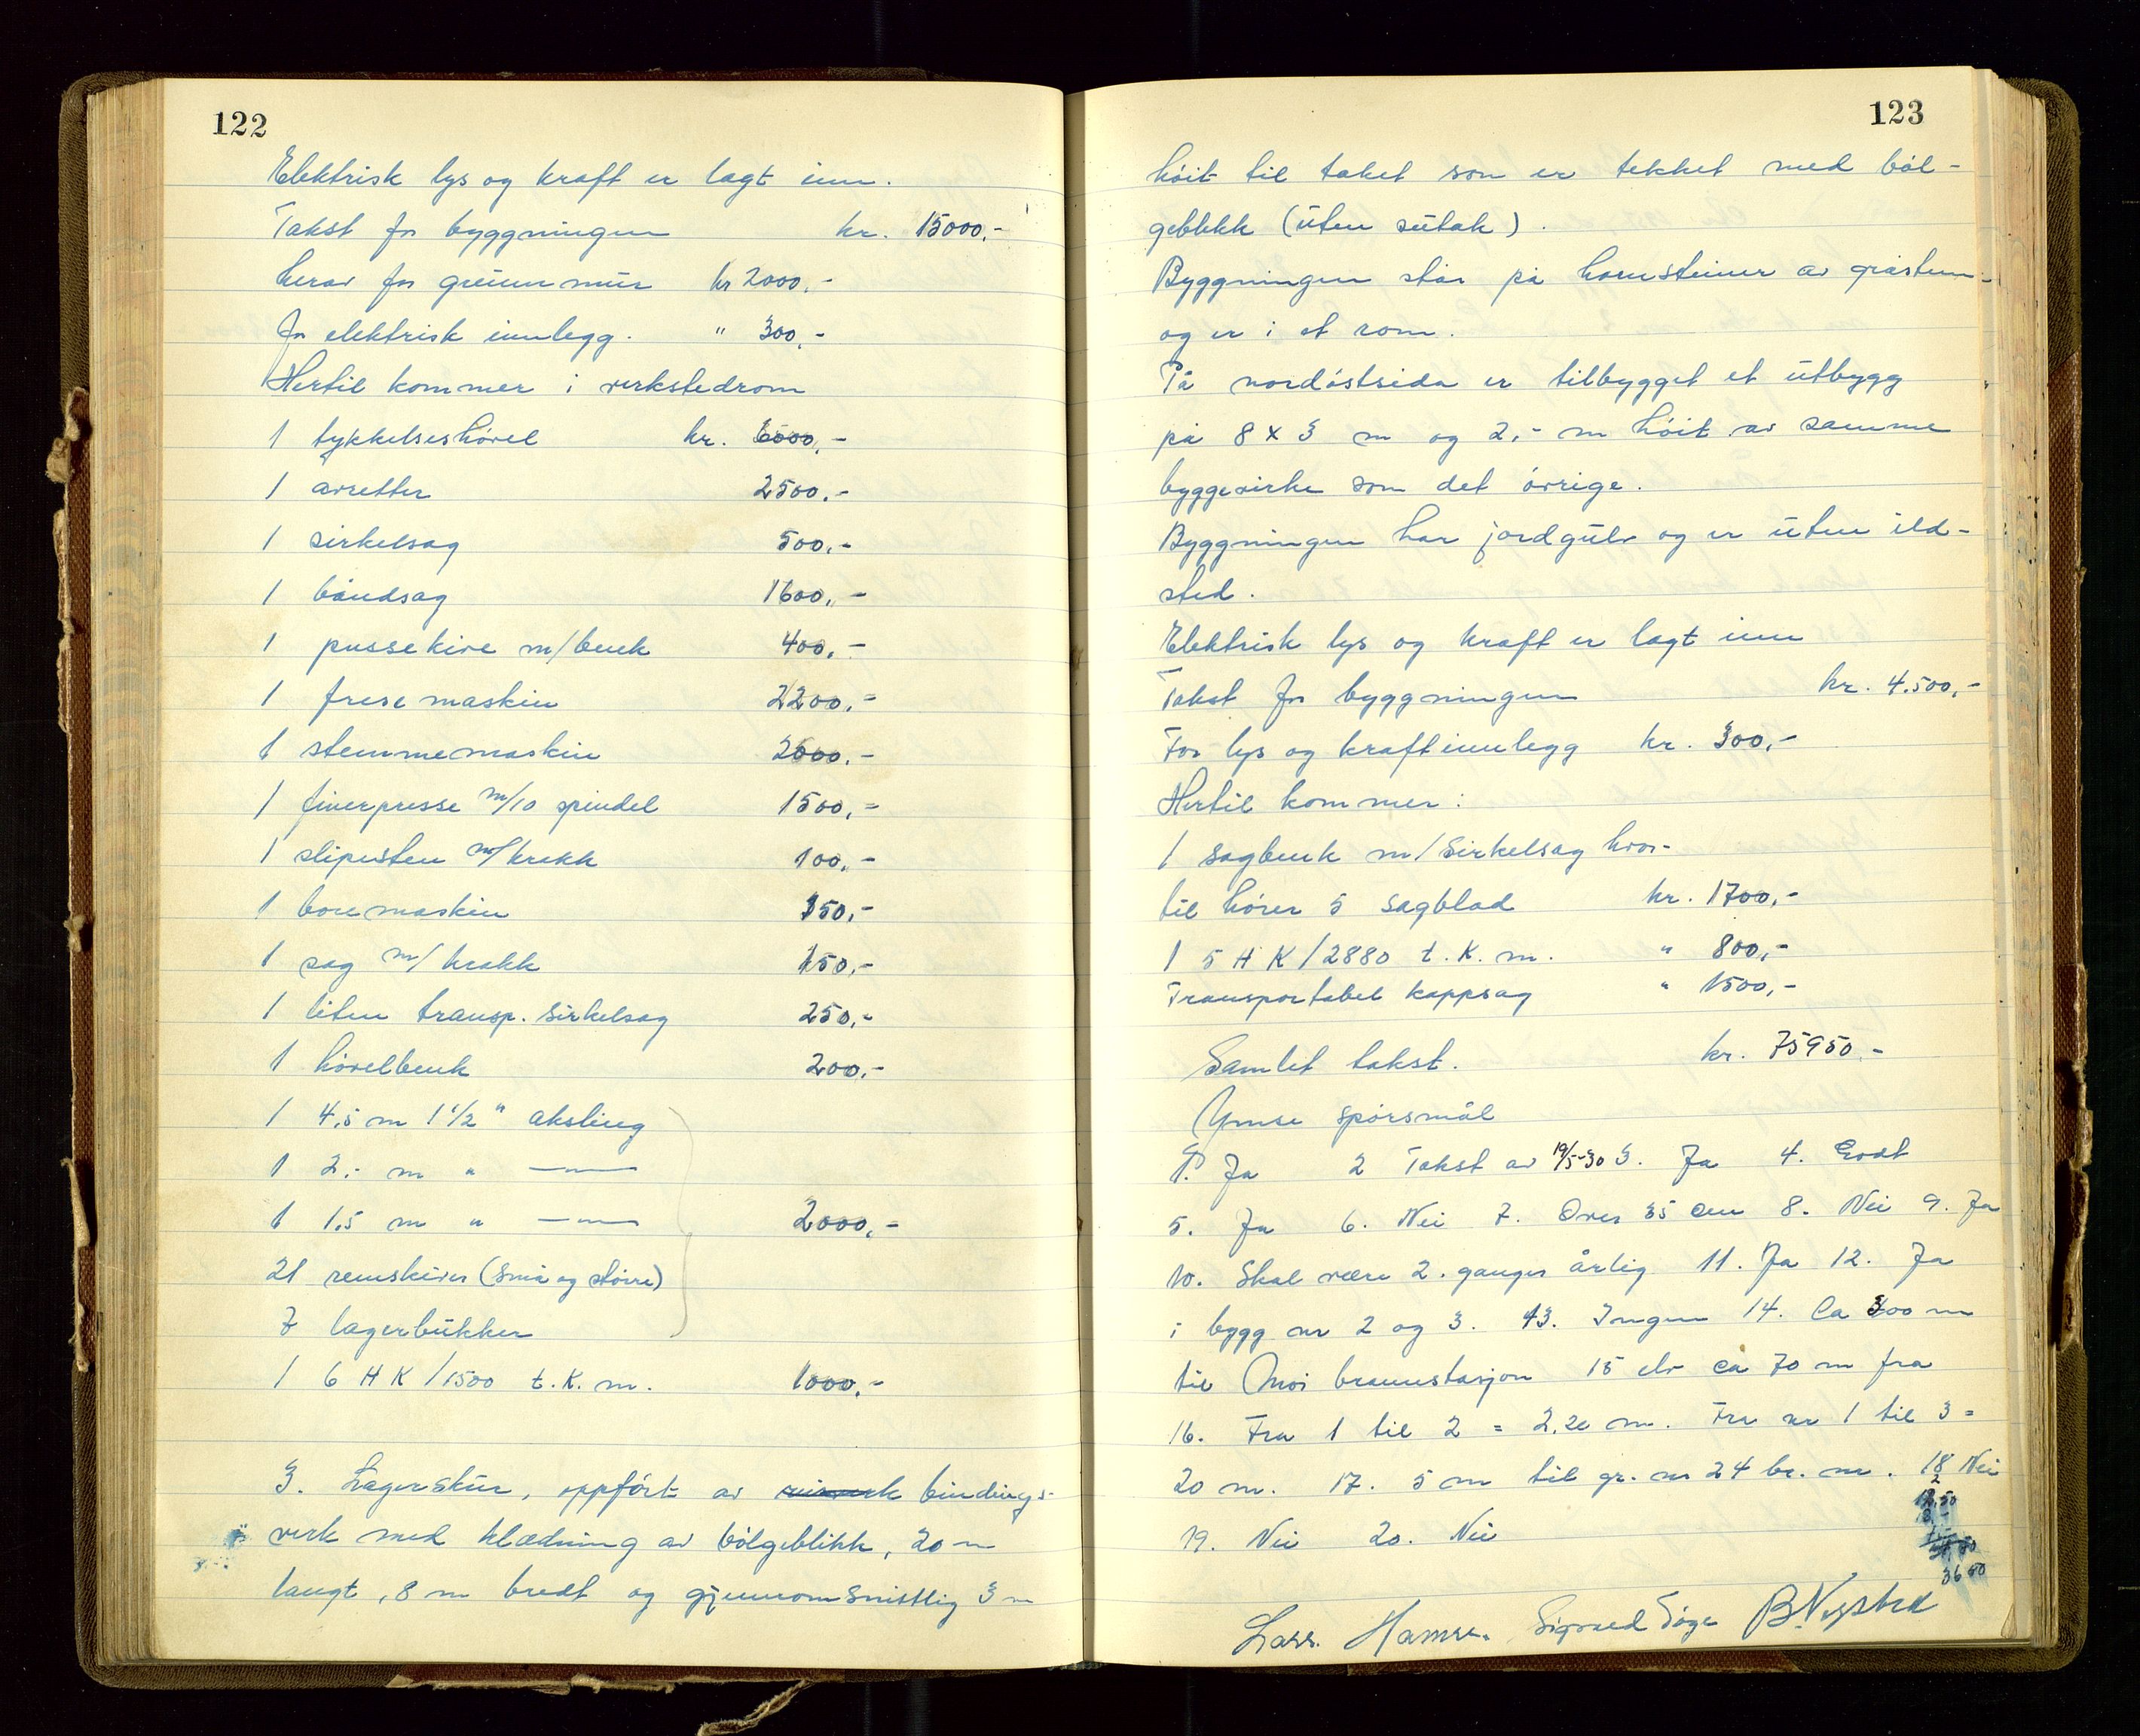 122
Elektrisk lys og kraft er lagt inn.
Takst for byggningen kr. 15000,-
herav for grunnmur kr 2000,-
for elektrisk innlegg. " 300,-
Hertil kommer i verkstedrom
1 tykkelseshövel kr. 6000,-
1 avretter 2500,-
1 sirkelsag 500,-
1 båndsag 1600,-
1 pusseskive m/benk 400,-
1 frese maskin 2200,-
1 stemmemaskin 2000,-
1 finerpresse m/10 spindel 1500,-
1 slipesten m/krakk 100,-
1 boremaskin 350,-
1 sag m/krakk 150,-
1 liten transp. sirkelsag 250,-
1 hövelbenk 200,-
1 4,5 m 1 1/2 " aksling
1 2,- m " —"—
1 1.5 m " —"—
2000,-
21 remskiver (små og störe)
7 lagerbukker
1 6 H K /1500 t.K.m. 1000,-
3. Lagerskur, oppfört av bindings-
verk med klædning av bölgeblikk, 20 m
langt, 8 m bredt og gjennomsnittlig 3 m
123
höit til taket som er tekket med böl-
geblekk (uten sutak).
Byggningen står på hornsteiner av gråsten
og er i et rom.
På nordöstsida er tilbygget et utbygg
på 8 x 3 m og 2,- m höit av samme
byggevirke som det övrige.
Byggningen har jordgulv og er uten ild-
sted.
Elektrisk lys og kraft er lagt inn
Takst for byggningen kr. 4.500,-
For lys og kraftinnlegg kr. 300,-
Hertil kommer:
1 sagbenk m/sirkelsag hvor-
til hörer 5 sagblad kr. 1700,-
1 5 H K /2880 t.K.m. " 800,-
Transportabel kappsag " 1500,-
Samlet takst. kr. 75950,-
Ymse spörsmål
1. Ja 2 Takst av 19/5-30 3. Ja 4. Godt
5. Ja 6. Nei 7. Over 35 cm 8. Nei 9. Ja
10. Skal være 2. ganger årlig 11. Ja 12. Ja
i bygg nr 2 og 3. 13. Ingen 14. Ca 300 m
til Moi brannstasjon 15 elv ca 70 m fra
16. Fra 1 til 2 = 2,20 m. Fra nr 1 til 3 =
20 m. 17. 5 m til gr. nr 24 br. nr. 18 Nei
19. Nei 20. Nei
36 50
Lars Hamre. Sigvald B. Nysted